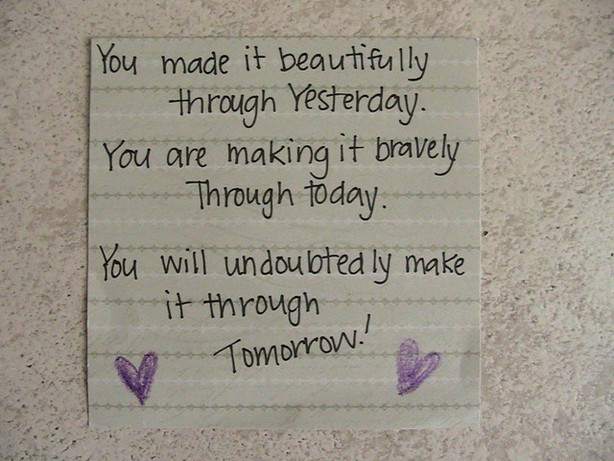 You made it beautifully
through Yesterday.
You are making it bravely
Through today.
You will undoubtedly make
it through
Tomorrow!